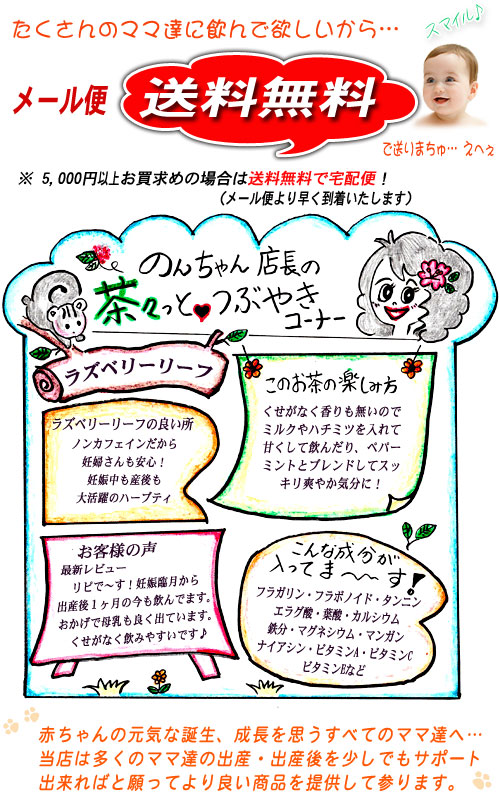 たくさんのママ達に飲んで欲しいから…
スマイル♪
メール便 送料無料
で送りまちゅ… えへぇ
※ 5,000円以上お買求めの場合は送料無料で宅配便！
（メール便より早く到着いたします）
のんちゃん店長の
茶々っと♥つぶやき
コーナー
ラズベリーリーフ
ラズベリーリーフの良い所
ノンカフェインだから
妊婦さんも安心！
妊娠中も産後も
大活躍のハーブティ
このお茶の楽しみ方
くせがなく香りも無いので
ミルクやハチミツを入れて
甘くして飲んだり、ペパー
ミントとブレンドしてスッ
キリ爽やか気分に！
お客様の声
最新レビュー
リピで～す！妊娠臨月から
出産後１ヶ月の今も飲んでます。
おかげで母乳も良く出ています。
くせがなく飲みやすいです♪
こんな成分が
入ってま～～す！
フラガリン・フラボノイド・タンニン
エラグ酸・葉酸・カルシウム
鉄分・マグネシウム・マンガン
ナイアシン・ビタミンA・ビタミンC
ビタミンEなど
赤ちゃんの元気な誕生、成長を思うすべてのママ達へ…
当店は多くのママ達の出産・出産後を少しでもサポート
出来ればと願ってより良い商品を提供して参ります。